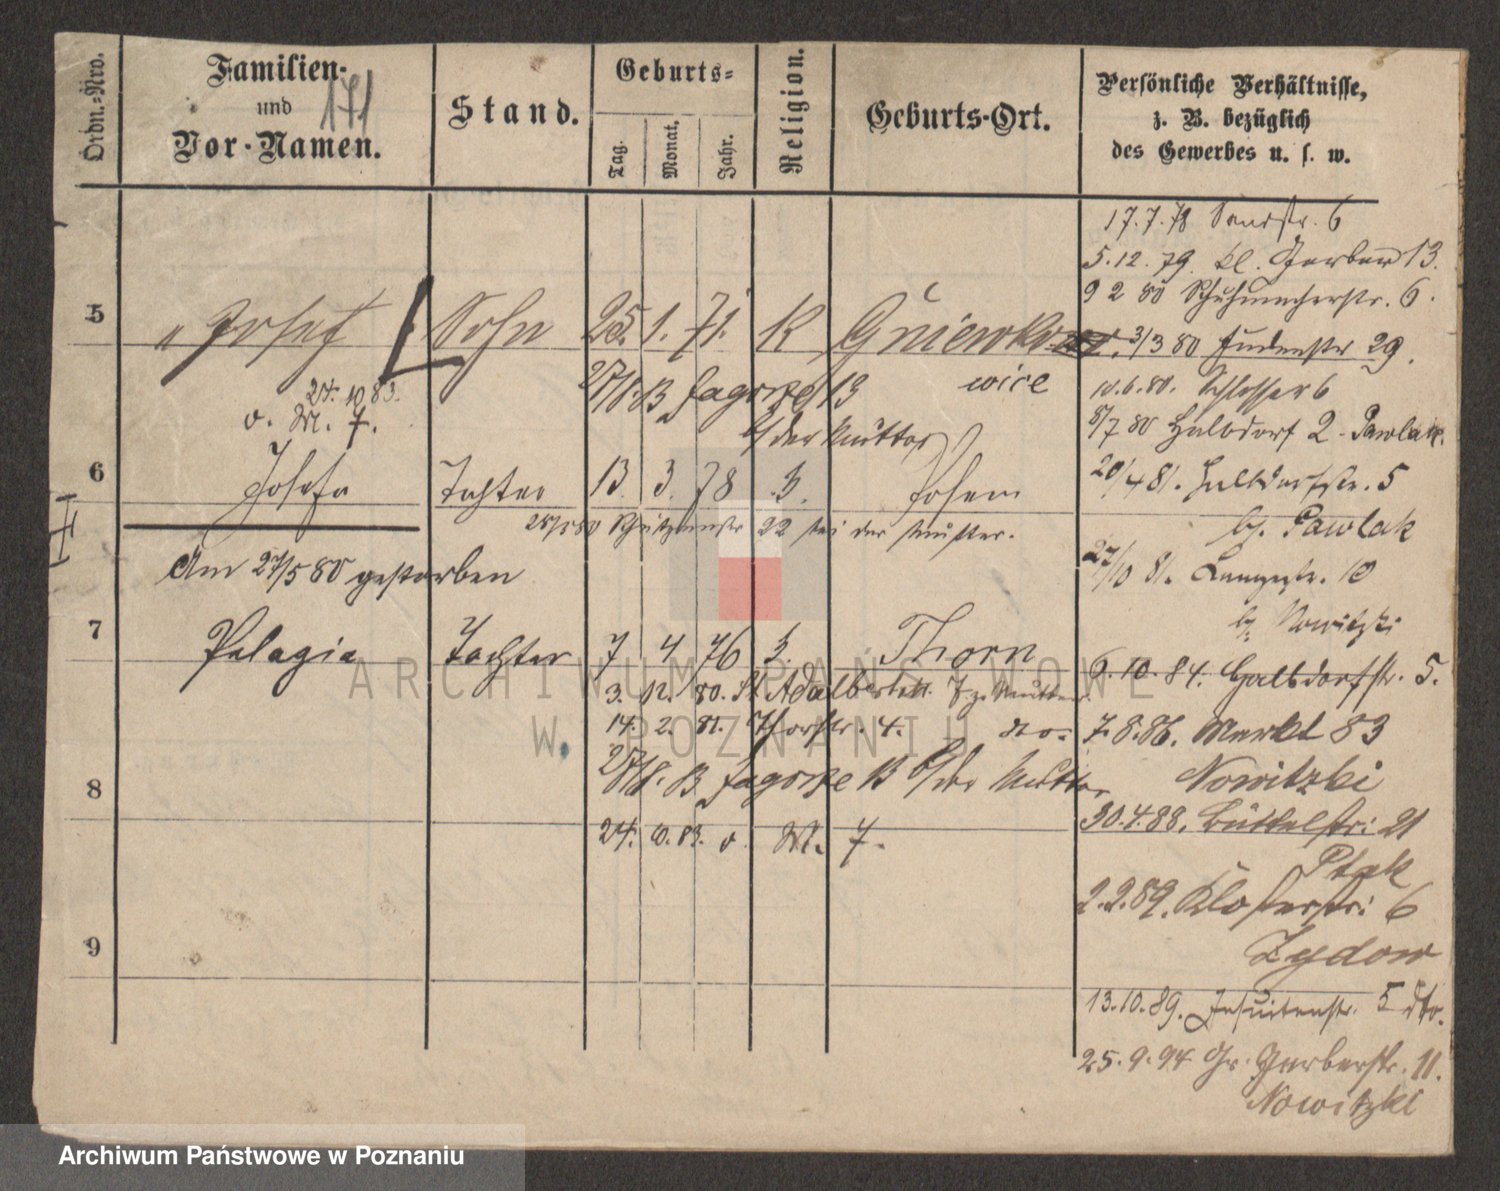 Ordn.-Nro.
Familien-
und
Vor-Namen.
171
Stand.
Geburts-
Tag.
Monat.
Jahr.
Religion.
Geburts-Ort.
Persönliche Verhältnisse,
z. B. bezüglich
des Gewerbes u. s. w.
17.7.78 Sandstr. 6
5.12.79. kl. Gerber 13.
9 2 80 Schuhmacherstr. 6.
3/3 80 Judenstr 29.
10.6.80. Schlosser 6
8/7 80 Halbdorf 2 - Pawlak.
20/4 81. Halbdorfstr. 5
bj. Pawlak
27/10 81. Langestr. 10
bj. Nowitzki
6.10.84. Halbdorfstr. 5.
7.8.86. Markt 83
Nowitzki
30.4.88. Büttelstr: 21
Ptak
2.2.89. Klosterstr: 6
Zydow
13.10.89. Jesuitenstr. 5 dto.
25.9.94 Gr. Gerberstr. 11.
Nowitzki
5
" Josef
Sohn
25. 1. 71.
K
Gniewko
wice
27/8. 13
13
b/ der Mutter
24. 10 83.
v. M. 7.
6
Josefa
Tochter
13. 3. 78
Posen
22 bei der Mutter.
Am 27/5 80 gestorben
7
Pelagia
Tochter
7 4 76
Thorn
3. 12. 80. St Adalbert
14. 2. 81. Thorstr. 4. do.
27/8. 13
13 b/ der Mutter
8
24. 10. 83. v. M. 7.
9
ARCHIWUM PAŃSTWOWE
W POZNANIU
Archiwum Państwowe w Poznaniu